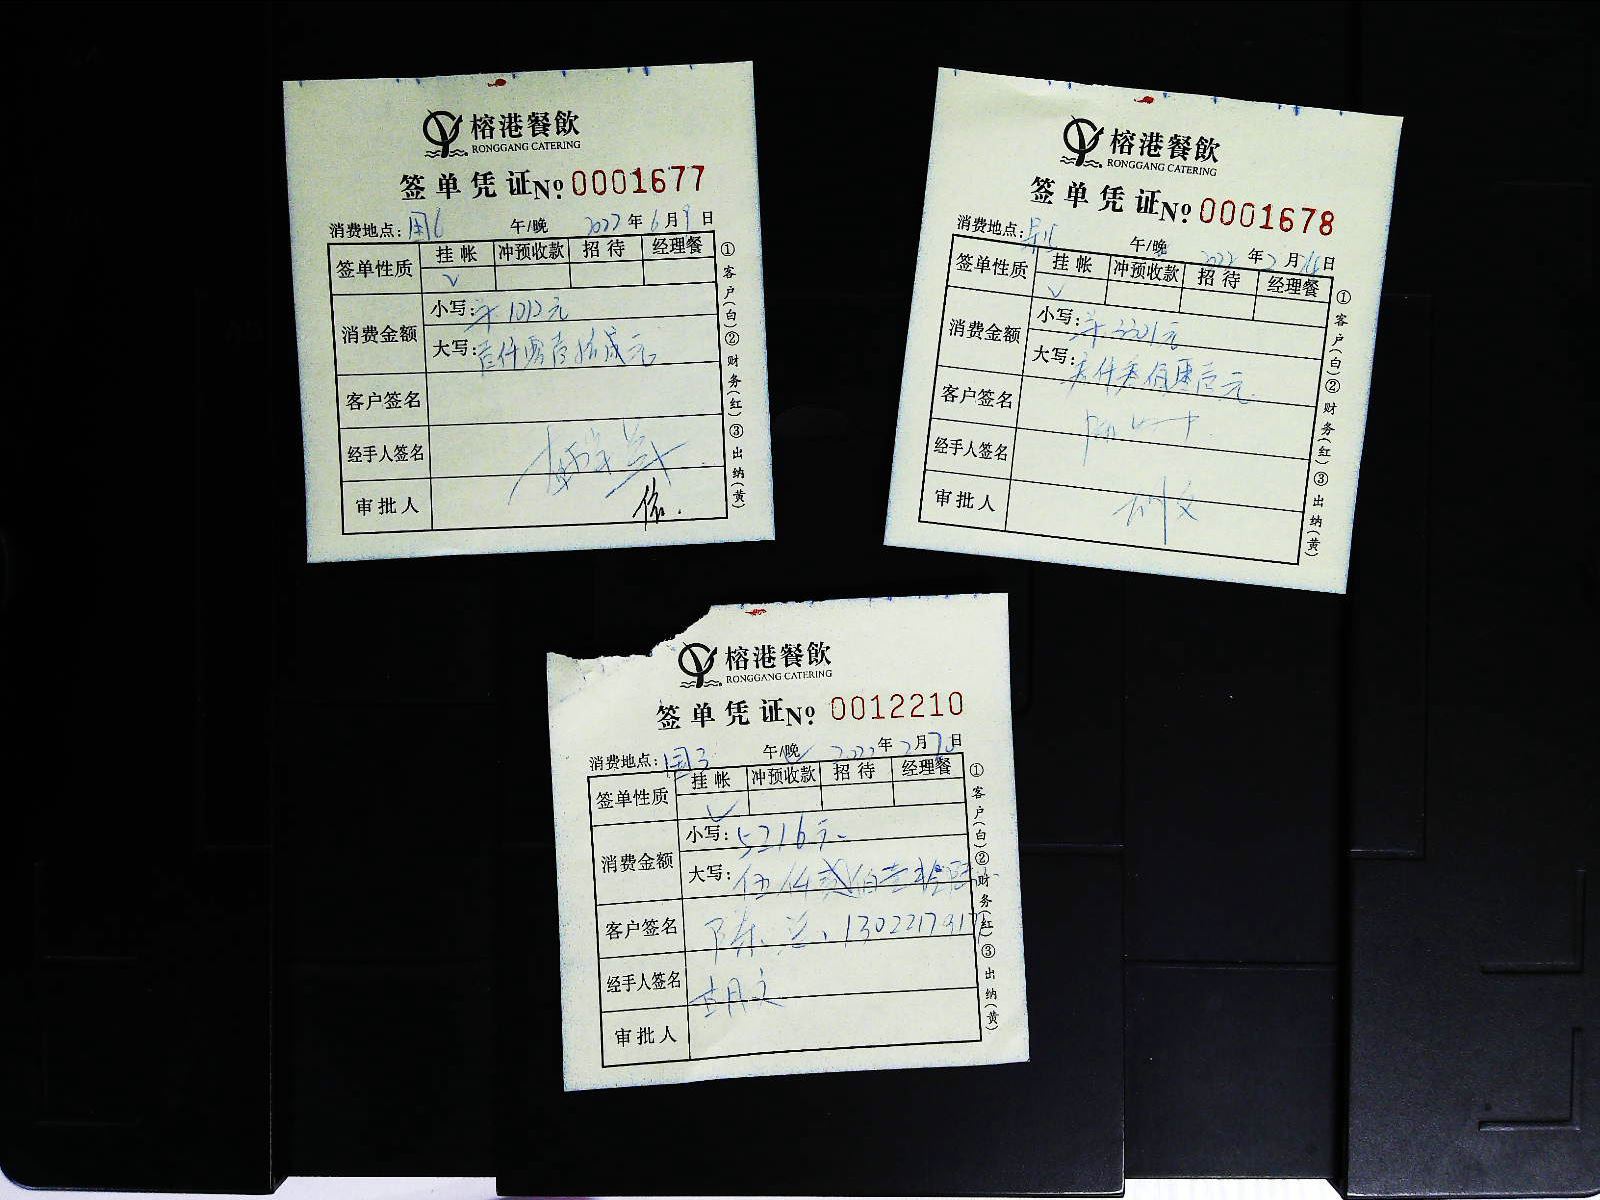 榕港餐飲
RONGGANG CATERING
签单凭证 No 0001677
消费地点: 国6 午/晚 2022年6月9日
签单性质 挂帐 冲预收款 招待 经理餐
√
消费金额 小写: 1012元
大写: 壹仟零壹拾贰元
客户签名
经手人签名
审批人
①客户(白)②财务(红)③出纳(黄)
榕港餐飲
RONGGANG CATERING
签单凭证 No 0001678
消费地点: 午/晚 2022年2月日
签单性质 挂帐 冲预收款 招待 经理餐
√
消费金额 小写: 元
大写: 元
客户签名
经手人签名
审批人
①客户(白)②财务(红)③出纳(黄)
榕港餐飲
RONGGANG CATERING
签单凭证 No 0012210
消费地点: 国3 午/晚 2022年2月日
签单性质 挂帐 冲预收款 招待 经理餐
√
消费金额 小写: 5216元
大写: 伍仟贰佰壹拾陆
客户签名 陈总、130221791
经手人签名 胡文
审批人
①客户(白)②财务(红)③出纳(黄)